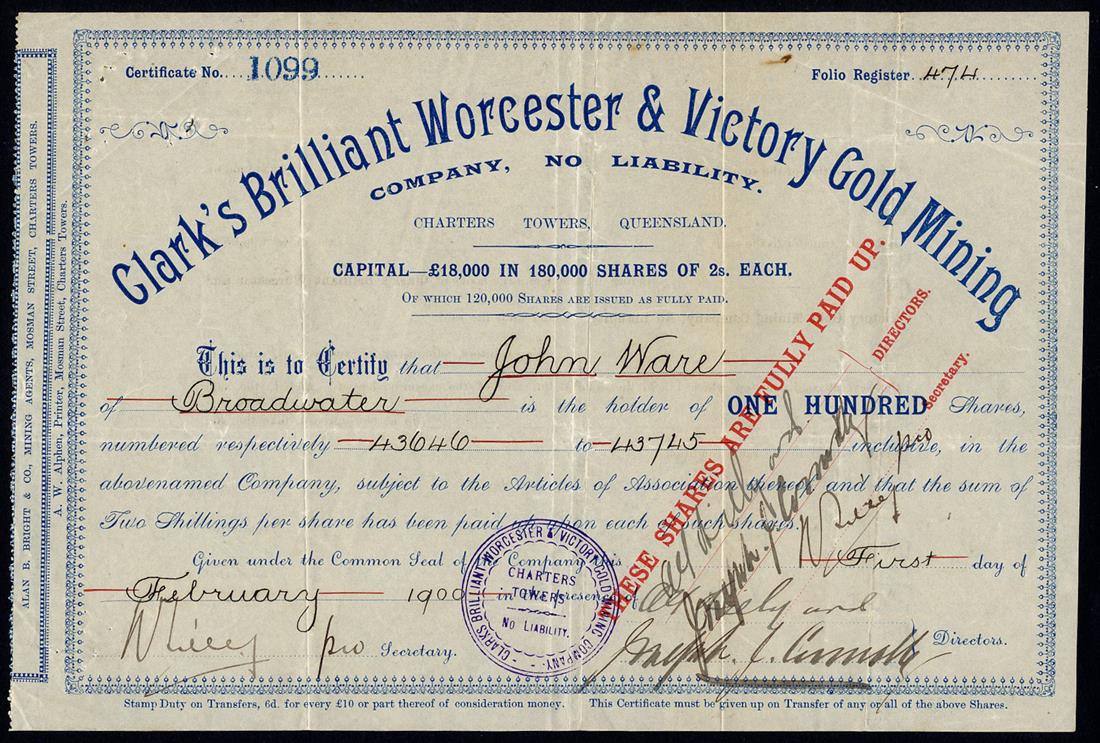 Certificate No. 1099
Folio Register. 474
Clark's Brilliant Worcester & Victory Gold Mining
COMPANY, NO LIABILITY.
CHARTERS TOWERS, QUEENSLAND.
CAPITAL—£18,000 IN 180,000 SHARES OF 2s. EACH.
OF WHICH 120,000 SHARES ARE ISSUED AS FULLY PAID.
This is to Certify that John Ware
of Broadwater is the holder of ONE HUNDRED Shares,
numbered respectively 43646 to 43745 inclusive, in the
abovenamed Company, subject to the Articles of Association thereof, and that the sum of
Two Shillings per share has been paid up upon each of such shares.
Given under the Common Seal of the Company this First day of
February 1900 in the presence of
pro Secretary.
Directors.
THESE SHARES ARE FULLY PAID UP.
DIRECTORS.
pro Secretary.
CLARKS BRILLIANT WORCESTER & VICTORY GOLD MINING COMPANY.
CHARTERS
TOWERS
NO LIABILITY.
Stamp Duty on Transfers, 6d. for every £10 or part thereof of consideration money. This Certificate must be given up on Transfer of any or all of the above Shares.
ALAN B. BRIGHT & CO., MINING AGENTS, MOSMAN STREET, CHARTERS TOWERS.
A. W. Alphen, Printer, Mosman Street, Charters Towers.